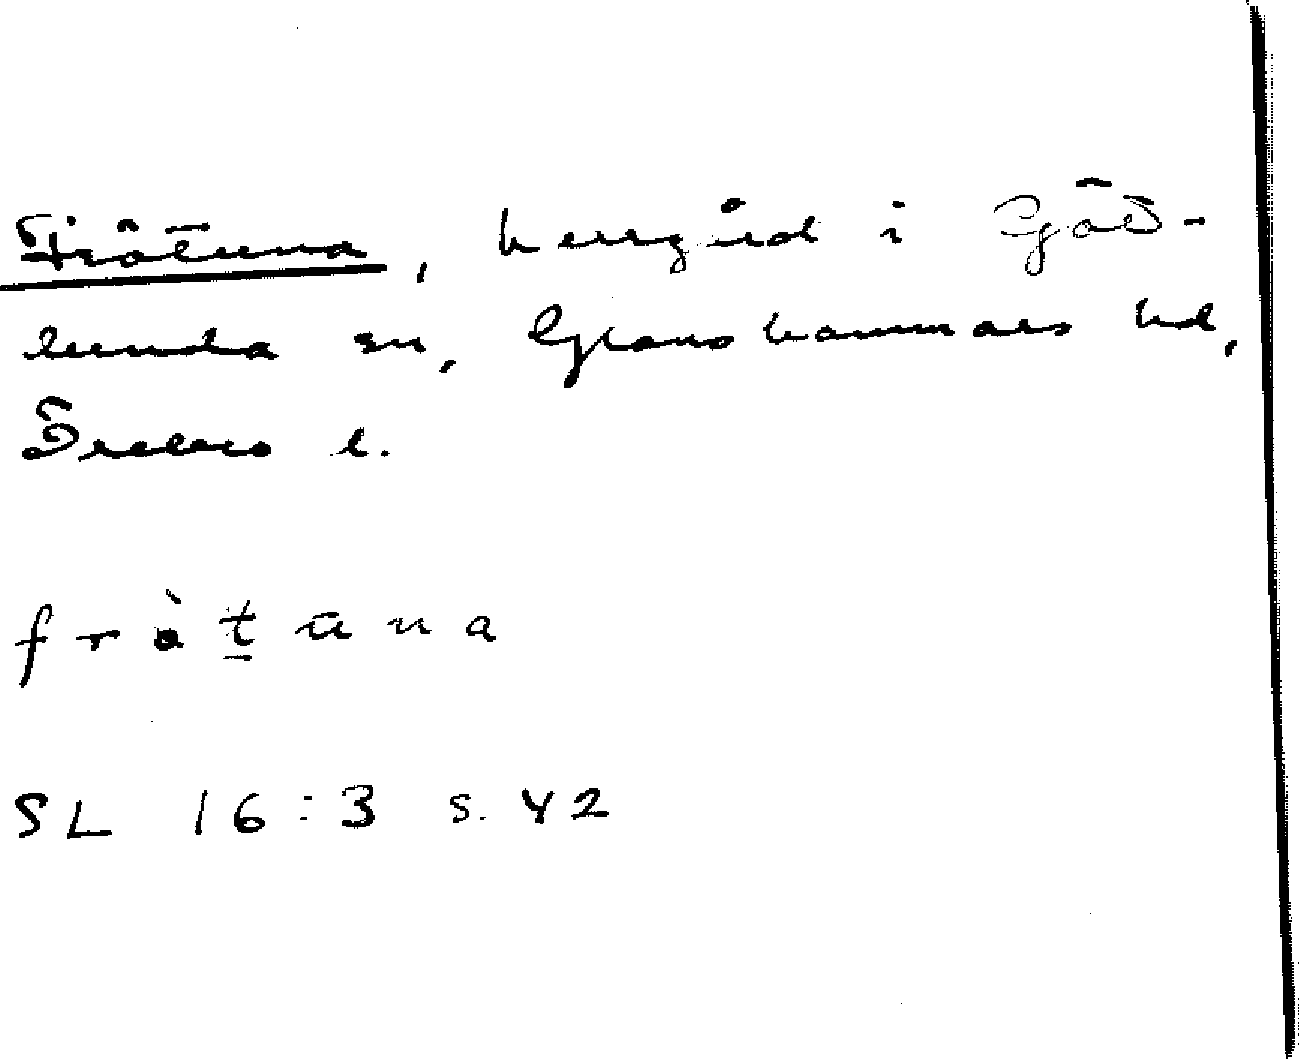 Frötuna, herrgård i Göt-
lunda sn, Glanshammars hd,
Örebro l.
f r ò t u n a
SL 16:3 s. 42